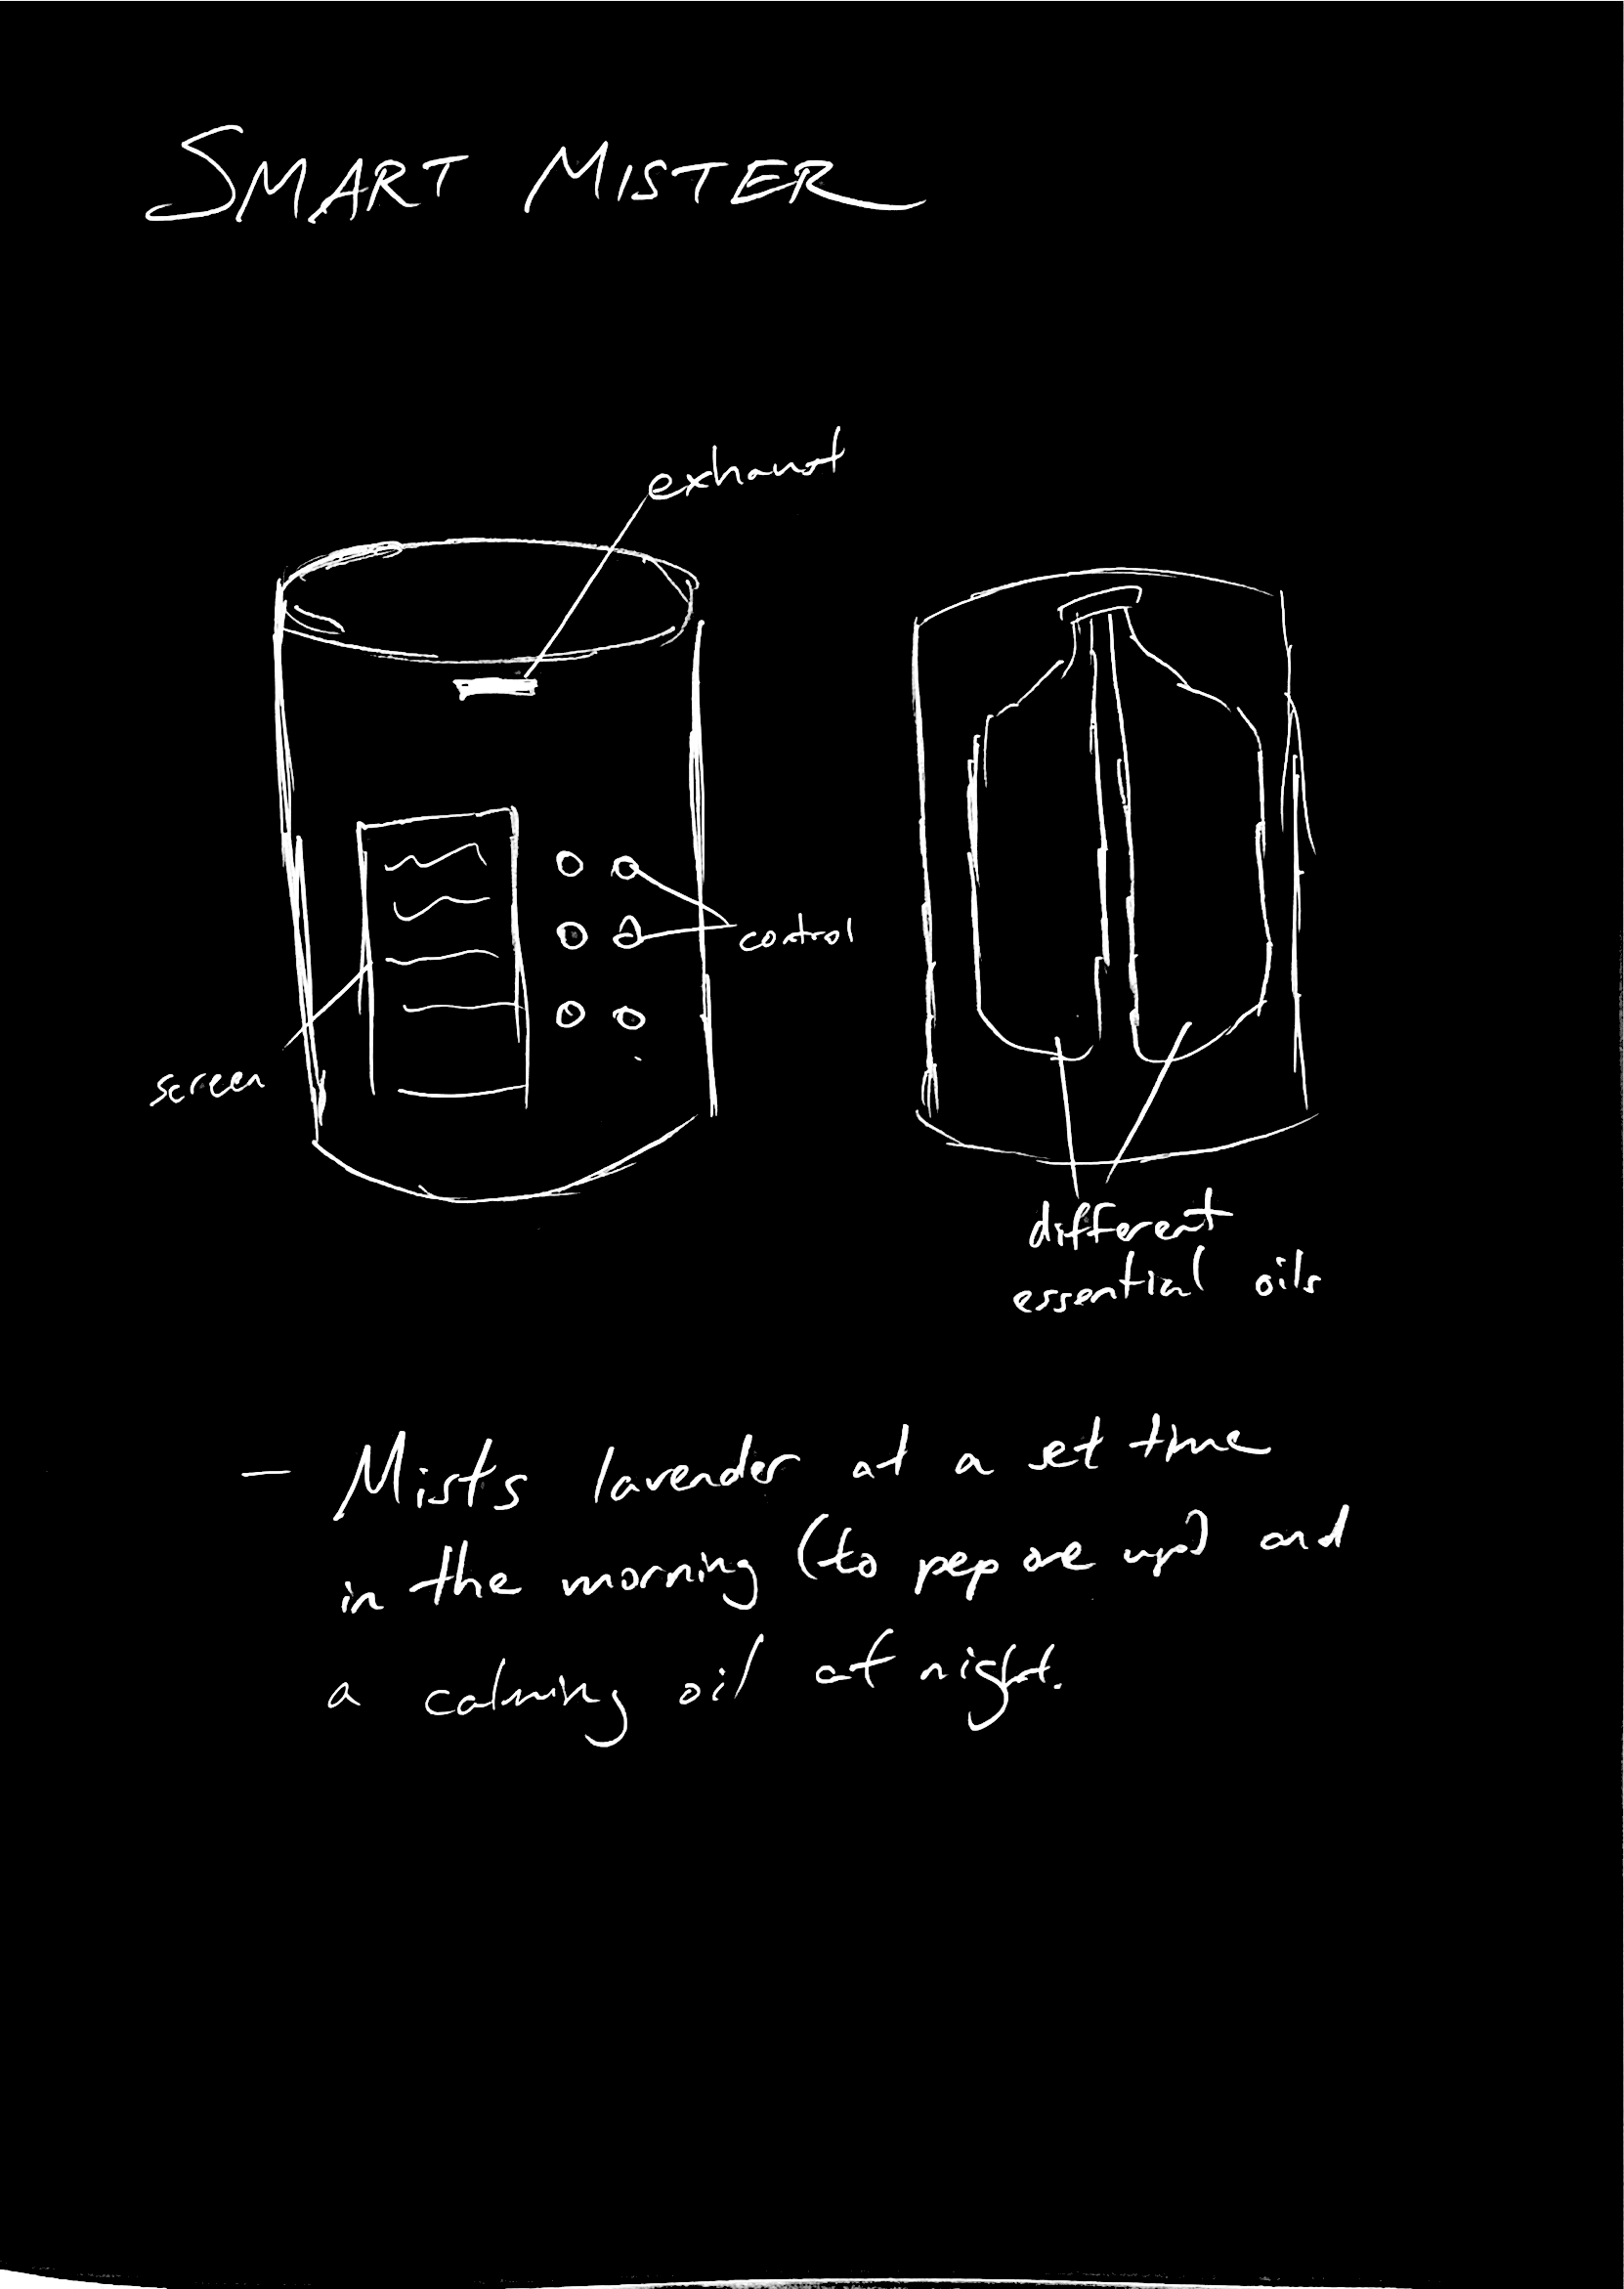 SMART MISTER
exhaust
control
screen
different
essential oils
- Mists lavender at a set time
in the morning (to pep one up) and
a calming oil at night.